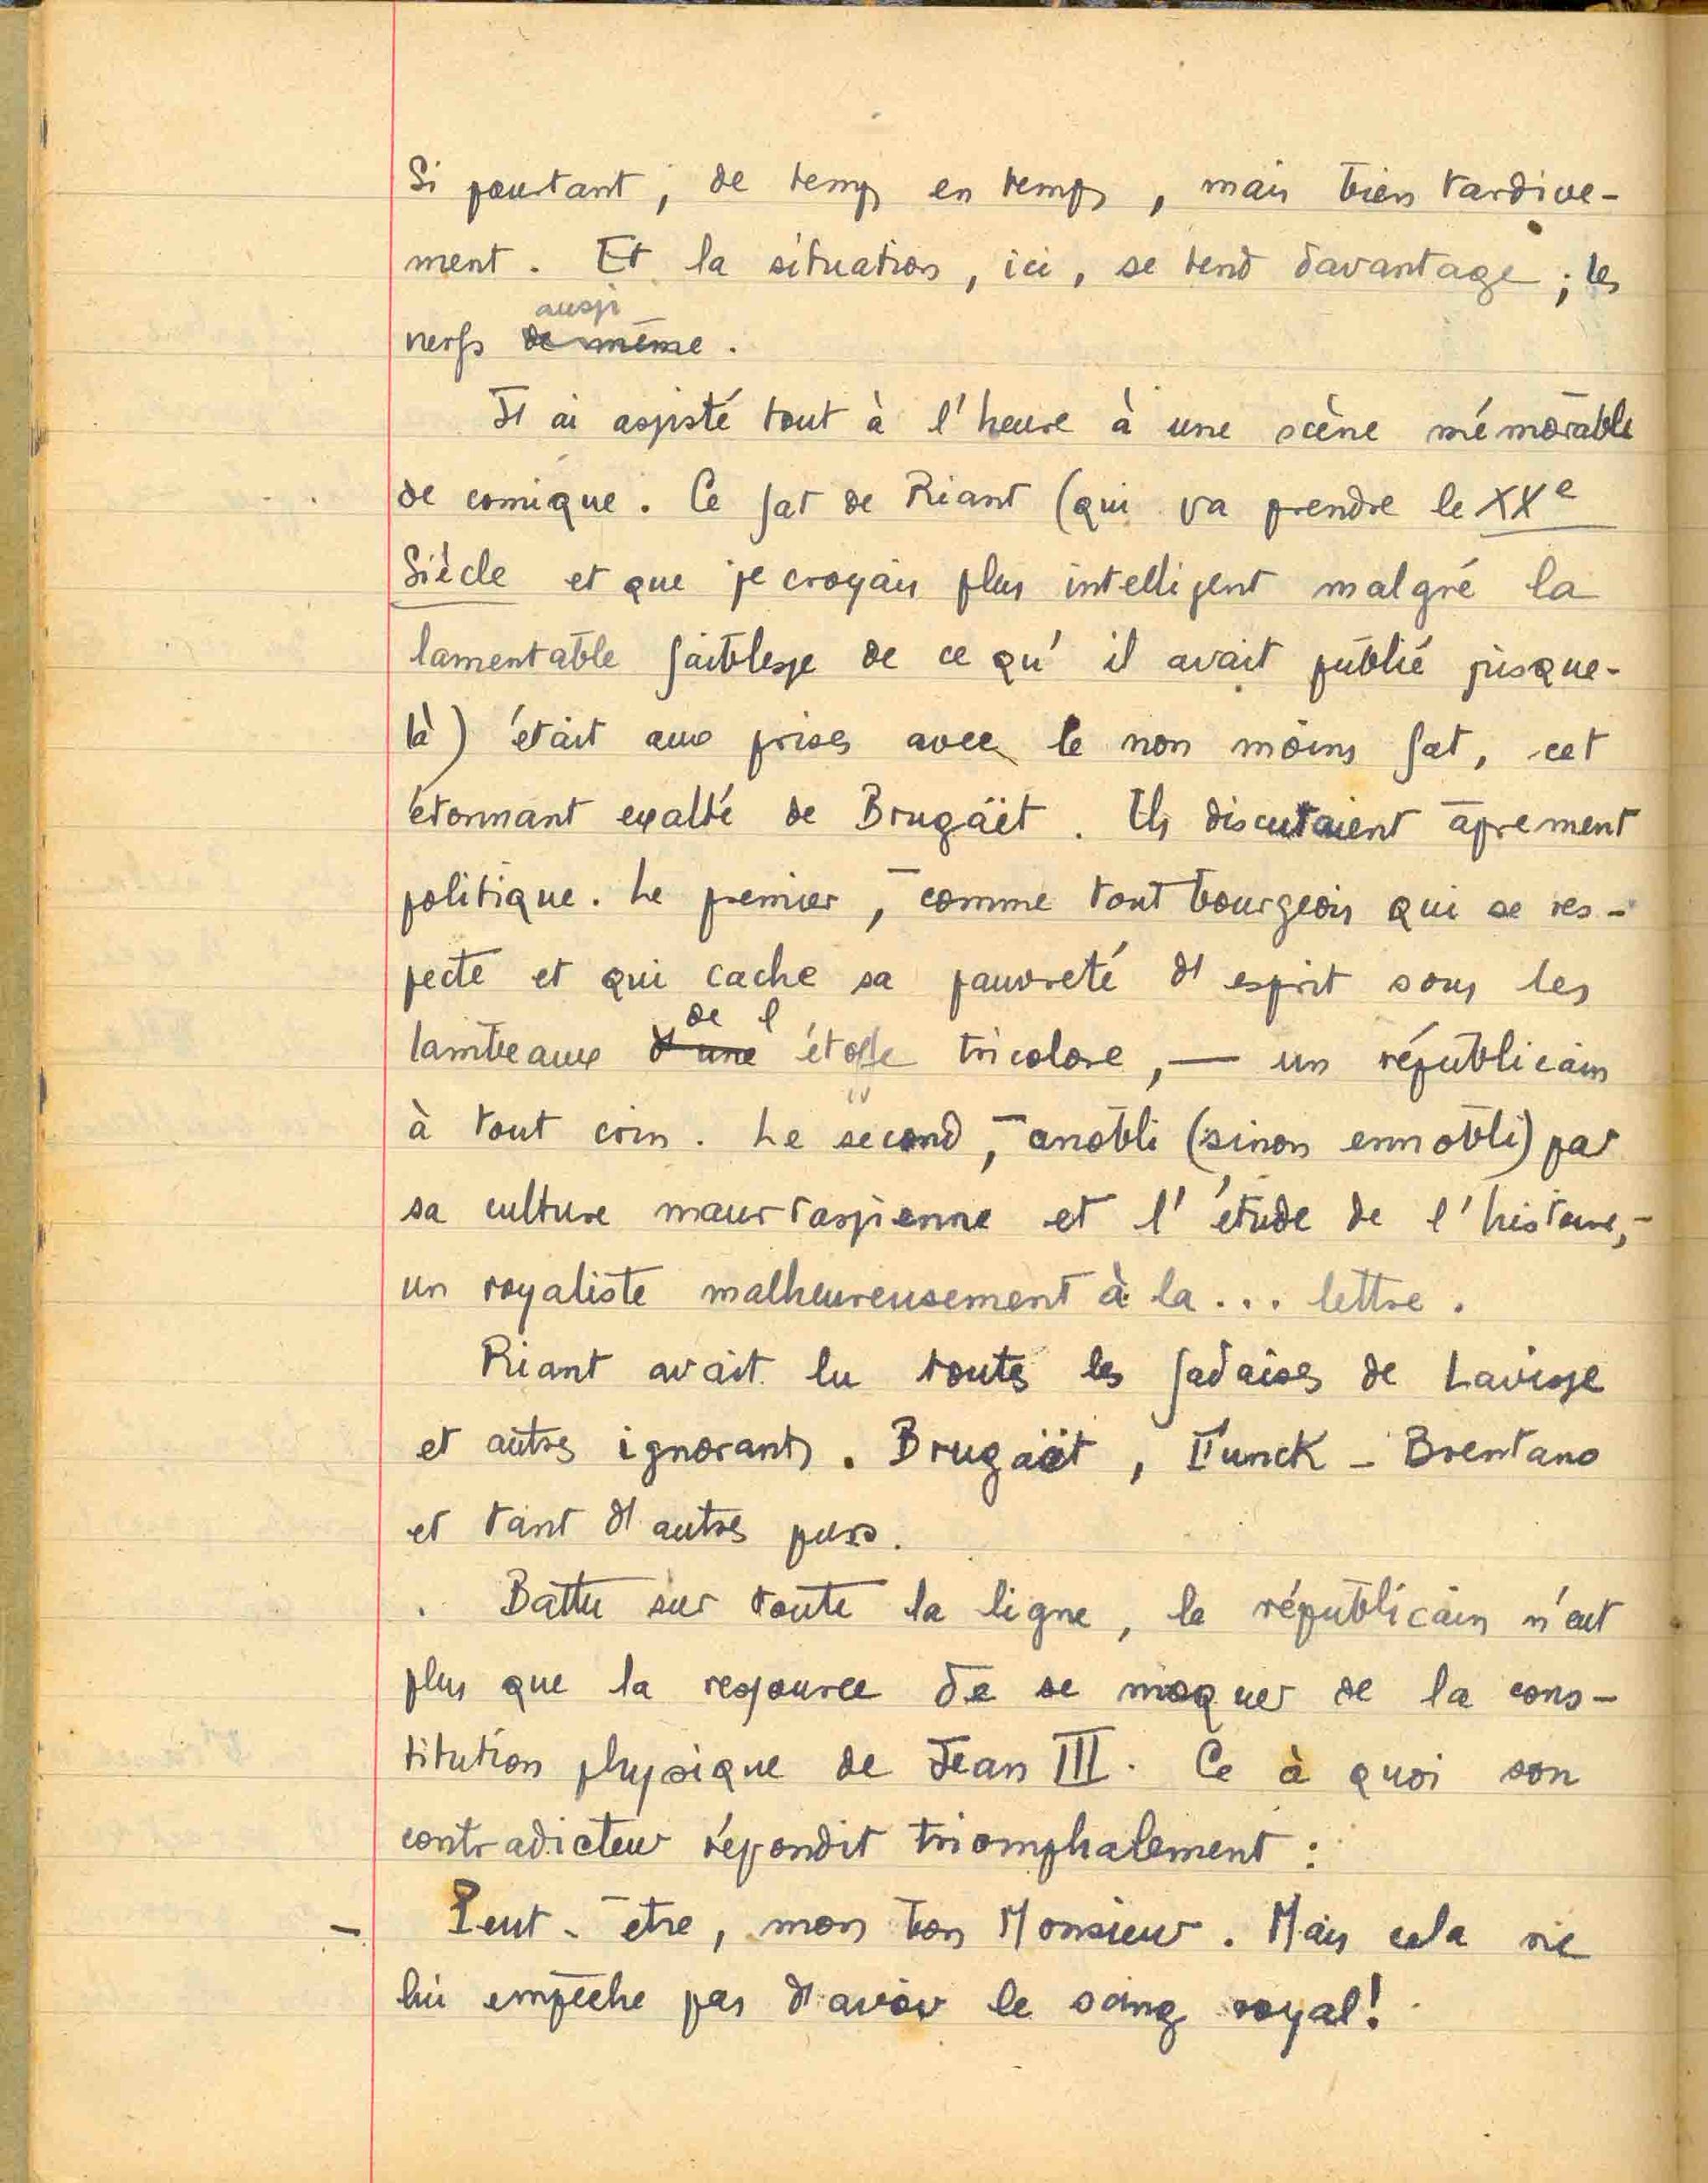 Si pourtant, de temps en temps, mais bien tardive-
ment. Et la situation, ici, se tend davantage ; les
aussi
nerfs de même.
J'ai assisté tout à l'heure à une scène mémorable
de comique. Ce fat de Riant (qui va prendre le XXe
Siècle et que je croyais plus intelligent malgré la
lamentable faiblesse de ce qu'il avait publié jusque-
là) était aux prises avec le non moins fat, cet
étonnant exalté de Brugäet. Ils discutaient âprement
politique. Le premier, — comme tout bourgeois qui se res-
pecte et qui cache sa pauvreté d'esprit sous les
de l
lambeaux d'une étoffe tricolore, — un républicain
à tout crin. Le second, — anobli (sinon ennobli) par
sa culture maurrassienne et l'étude de l'histoire, —
un royaliste malheureusement à la... lettre.
Riant avait lu toutes les fadaises de Lavisse
et autres ignorants. Brugäet, Funck-Brentano
et tant d'autres purs.
Battu sur toute la ligne, le républicain n'eut
plus que la ressource de se moquer de la cons-
titution physique de Jean III. Ce à quoi son
contradicteur répondit triomphalement :
— Peut-être, mon bon Monsieur. Mais cela ne
lui empêche pas d'avoir le sang royal !